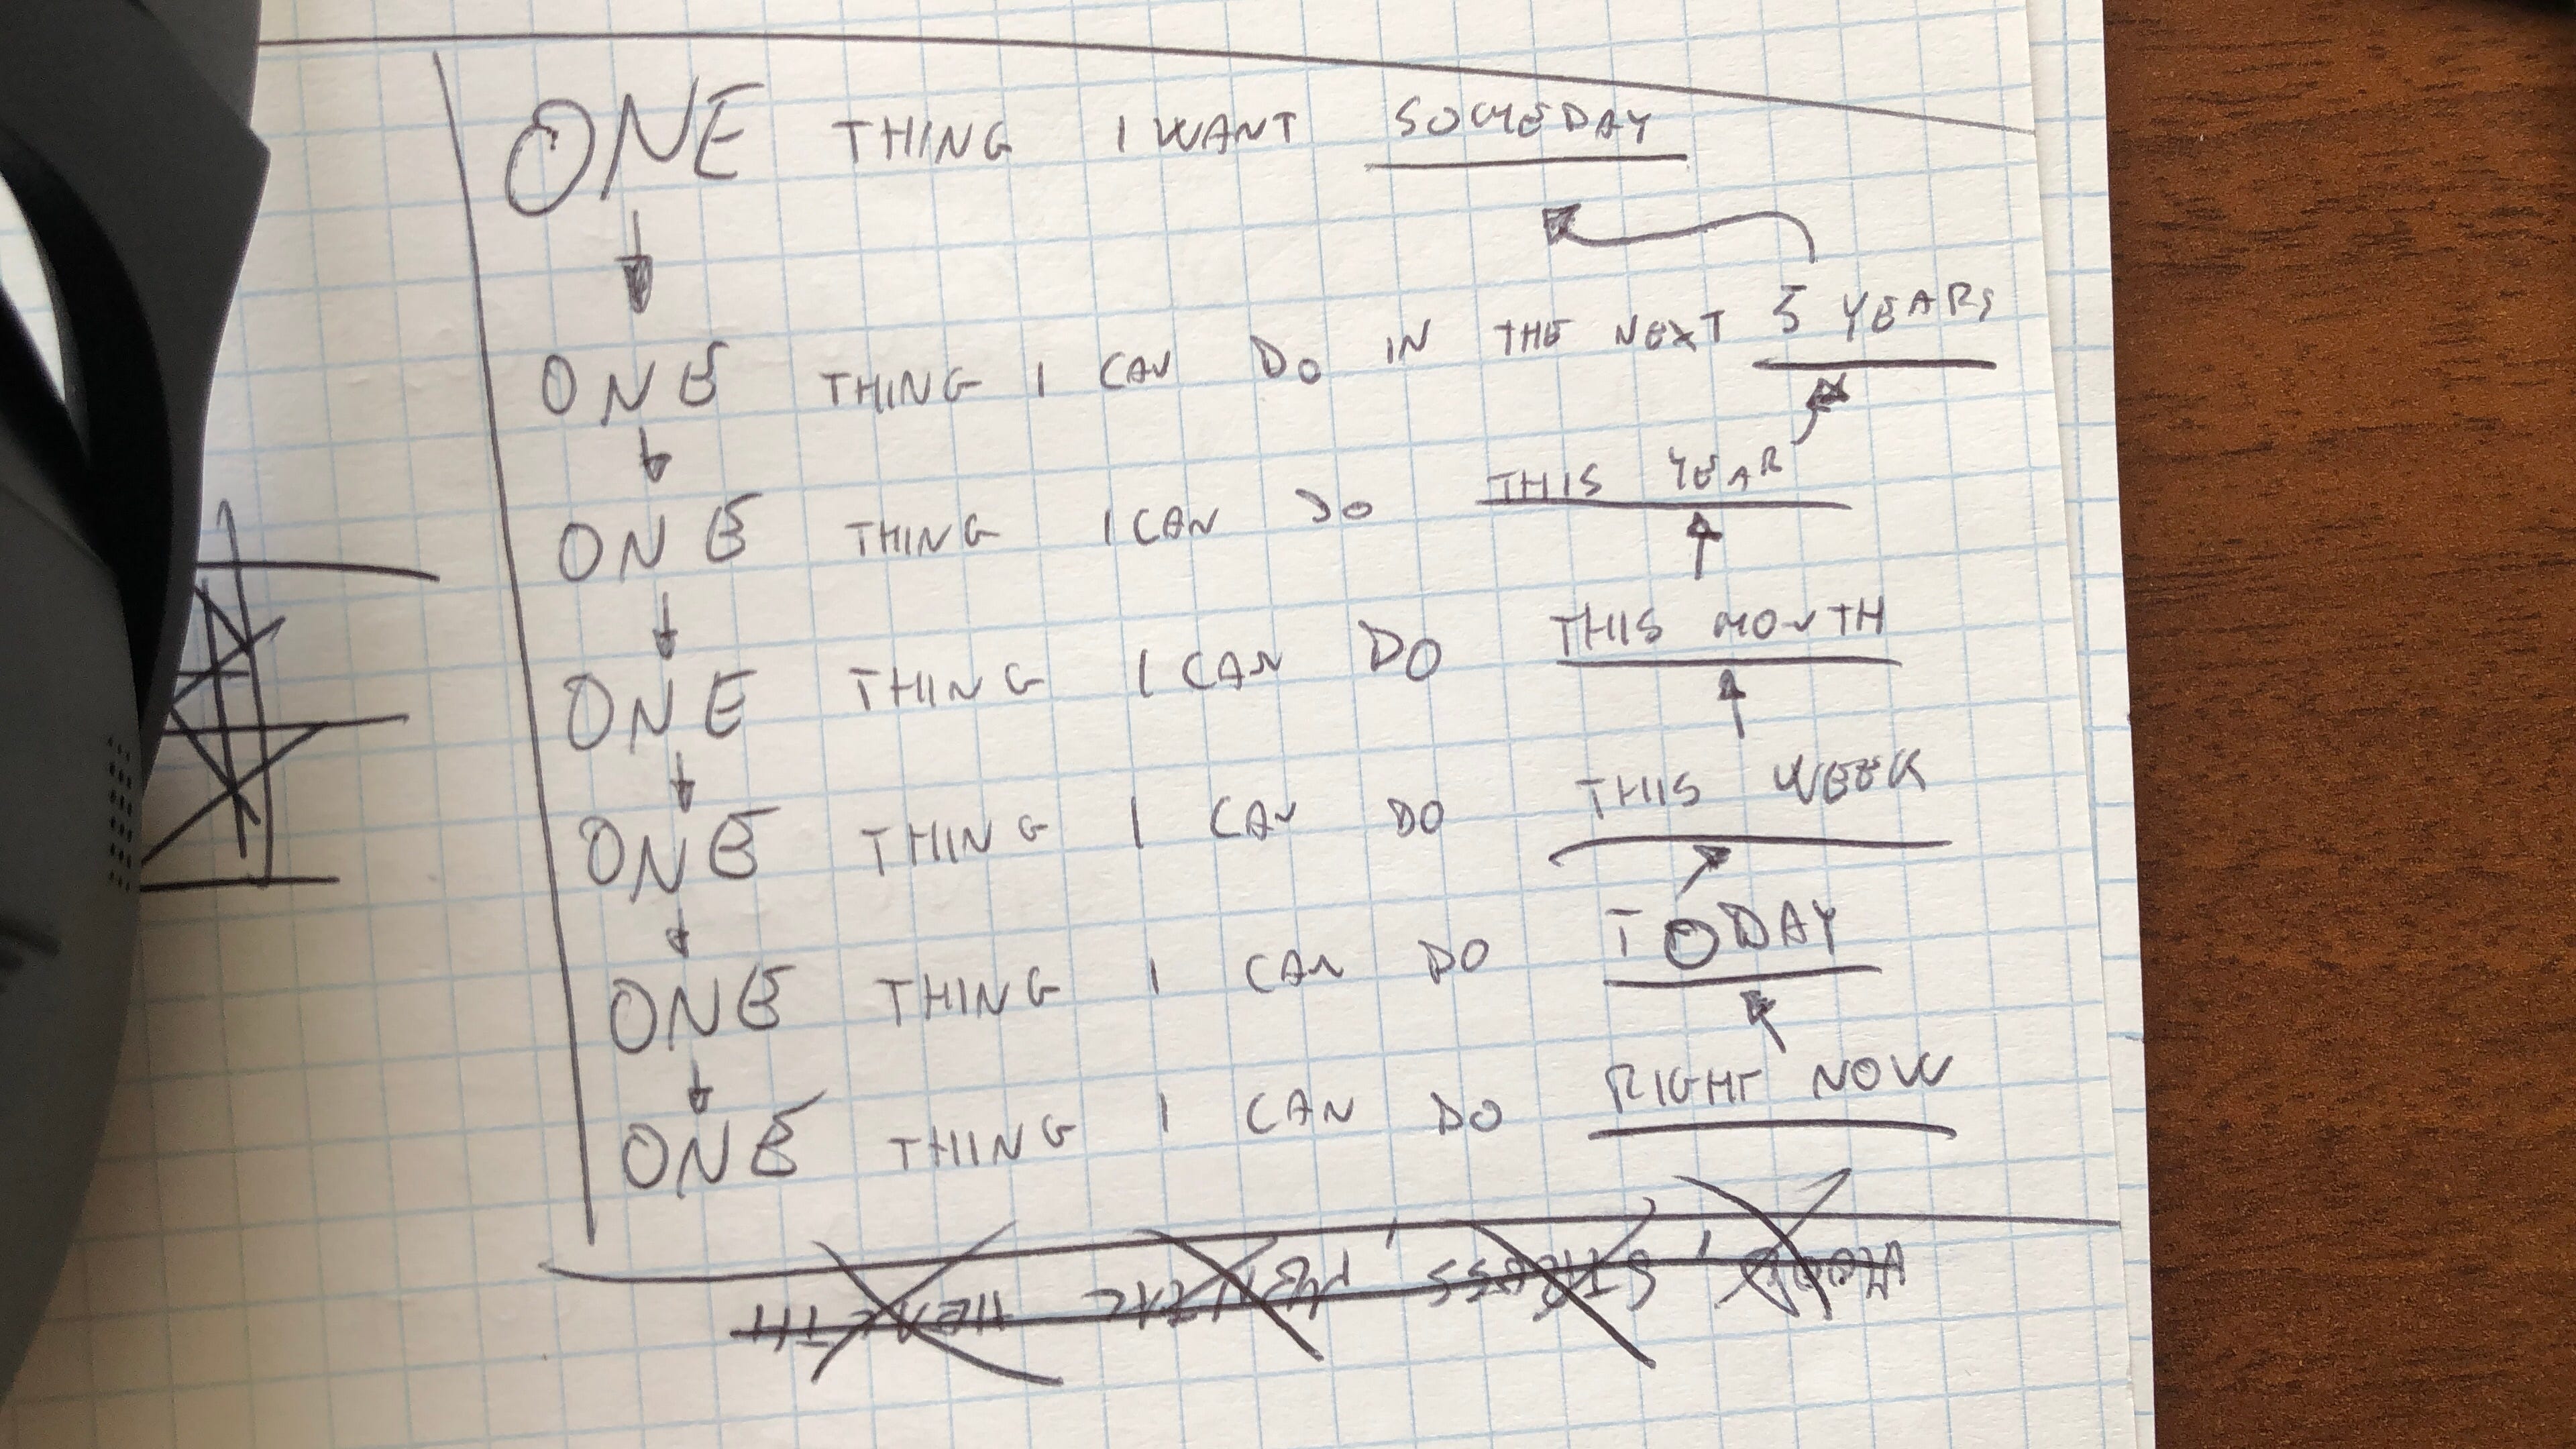 ONE THING I WANT SOMEDAY
ONE THING I CAN DO IN THE NEXT 5 YEARS
ONE THING I CAN DO THIS YEAR
ONE THING I CAN DO THIS MONTH
ONE THING I CAN DO THIS WEEK
ONE THING I CAN DO TODAY
ONE THING I CAN DO RIGHT NOW
STRESS, MENTAL HEALTH